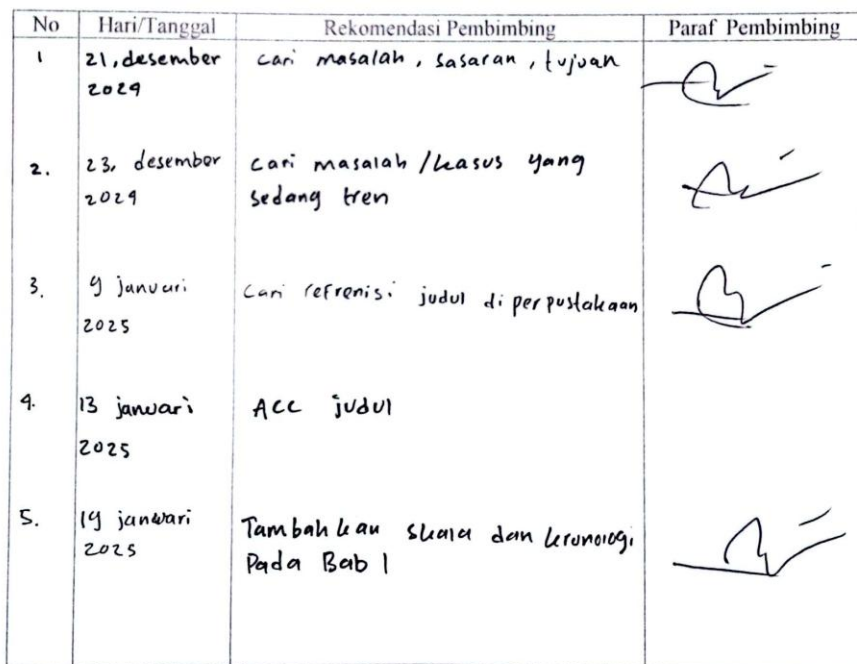 No Hari/Tanggal Rekomendasi Pembimbing Paraf Pembimbing
1 21, desember cari masalah, sasaran, tujuan
2024
2. 23, desember cari masalah/kasus yang
2024 sedang tren
3. 9 januari cari refrenisi judul di perpustakaan
2025
4. 13 januari ACC judul
2025
5. 19 januari Tambahkan skala dan kronologi
2025 Pada Bab 1